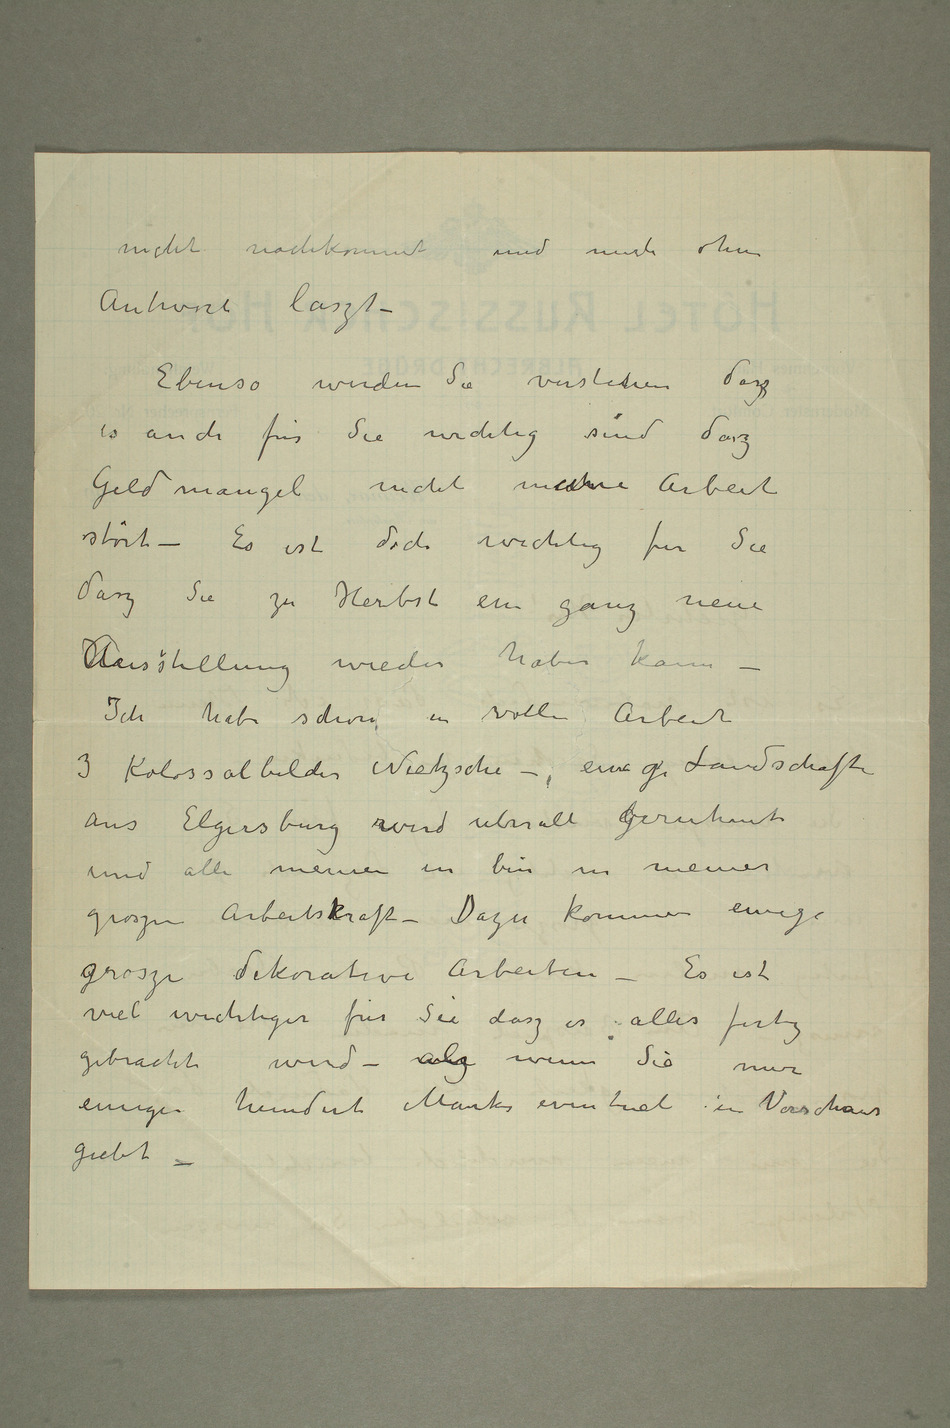 nicht nachkommt und mich ohne
Antwort laszt –
Ebenso werden Sie verstehen dasz
es auch für Sie wichtig sind dasz
Geldmangel nicht meine Arbeit
stört – Es ist doch wichtig für Sie
dasz Sie zu Herbst ein ganz neue
Ausstellung wieder haben kann –
Ich habe schon in voller Arbeit
3 Kolossalbilder Nietzsche –, einige Landschafte
aus Elgersburg wird uberall gerühmt
und alle meinen in bin in meiner
groszen Arbeitskraft – Dazu kommen einige
grosze dekorative Arbeiten – Es ist
viel wichtiger für Sie dasz es alles fertig
gebracht wird – als wenn Sie mir
einige hundert Mark eventuel in Vorschaus
giebt –
HOTEL RUSSISCHER HOF